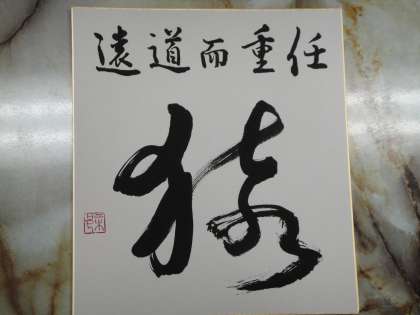 任重而道遠
猿